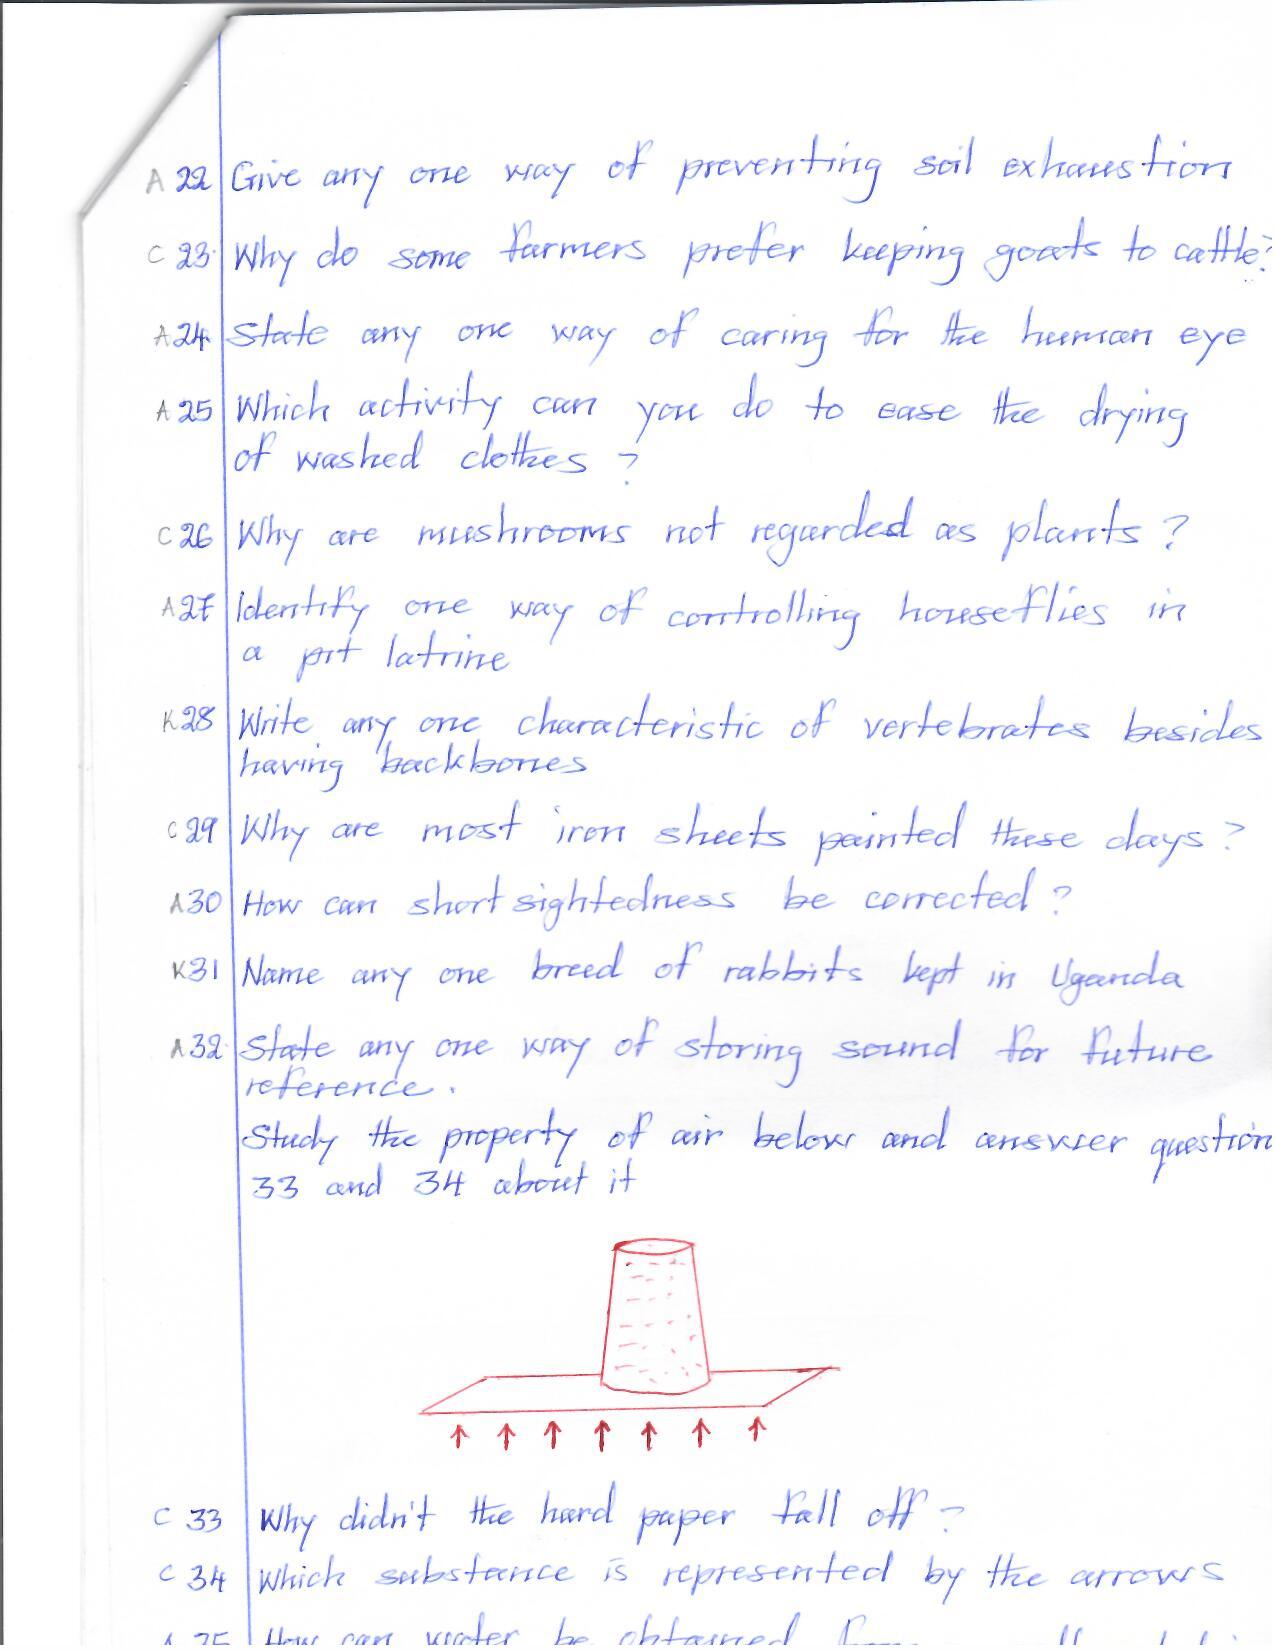 A 22 Give any one way of preventing soil exhaustion
C 23. Why do some farmers prefer keeping goats to cattle?
A 24 State any one way of caring for the human eye
A 25 Which activity can you do to ease the drying
of washed clothes ?
C 26 Why are mushrooms not regarded as plants ?
A 27 Identify one way of controlling houseflies in
a pit latrine
K 28 Write any one characteristic of vertebrates besides
having backbones
C 29 Why are most iron sheets painted these days ?
A 30 How can short sightedness be corrected ?
K 31 Name any one breed of rabbits kept in Uganda
A 32. State any one way of storing sound for future
reference.
Study the property of air below and answer question
33 and 34 about it
C 33 Why didn't the hard paper fall off ?
C 34 Which substance is represented by the arrows
A 35 How can water be obtained from